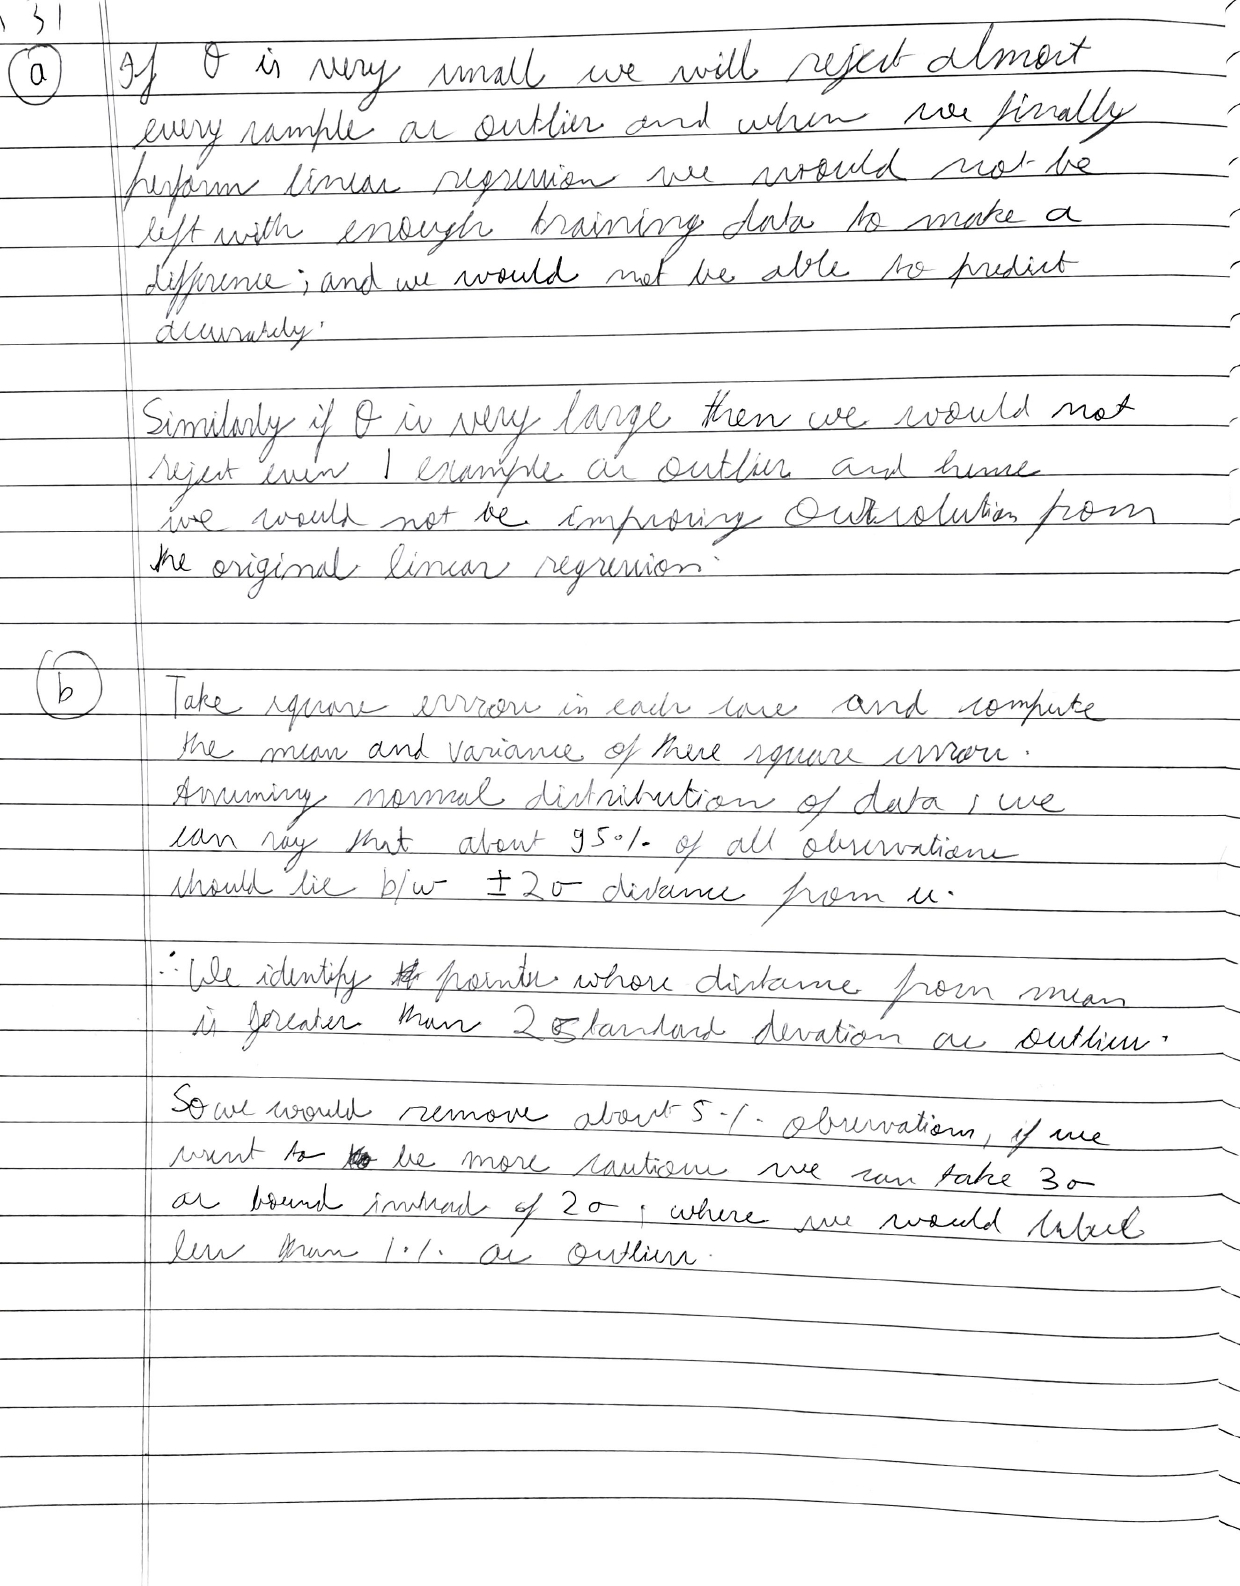 31
(a) If θ is very small we will reject almost
every sample as outlier and when we finally
perform linear regression we would not be
left with enough training data to make a
difference; and we would not be able to predict
accurately.
Similarly if θ is very large then we would not
reject even 1 example as outlier and hence
we would not be improving Our solution from
the original linear regression.
(b) Take square error in each case and compute
the mean and variance of these square error.
Assuming normal distribution of data, we
can say that about 95% of all observations
should lie b/w ±2σ distance from u.
∴ We identify points whose distance from mean
is greater than 2 standard devation as outlier.
So we would remove about 5% observations, if we
want to be more cautious we can take 3σ
as bound instead of 2σ, where we would label
less than 1% as outlier.